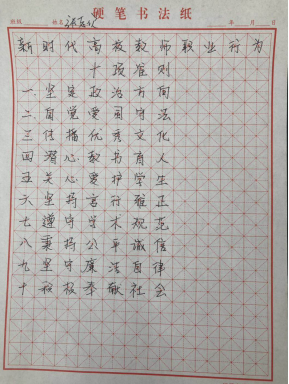 硬笔书法纸
班级 姓名 年 月 日
新时代高校教师职业行为
十项准则
一.坚定政治方向
二.自觉爱国守法
三传播优秀文化
四潜心教书育人
五关心爱护学生
六坚持言行雅正
七遵守学术规范
八秉持公平诚信
九坚守廉洁自律
十积极奉献社会